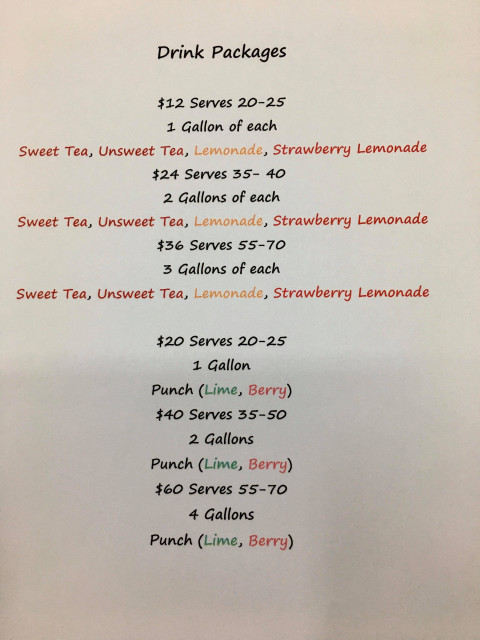 Drink Packages
$12 Serves 20-25
1 Gallon of each
Sweet Tea, Unsweet Tea, Lemonade, Strawberry Lemonade
$24 Serves 35- 40
2 Gallons of each
Sweet Tea, Unsweet Tea, Lemonade, Strawberry Lemonade
$36 Serves 55-70
3 Gallons of each
Sweet Tea, Unsweet Tea, Lemonade, Strawberry Lemonade
$20 Serves 20-25
1 Gallon
Punch (Lime, Berry)
$40 Serves 35-50
2 Gallons
Punch (Lime, Berry)
$60 Serves 55-70
4 Gallons
Punch (Lime, Berry)